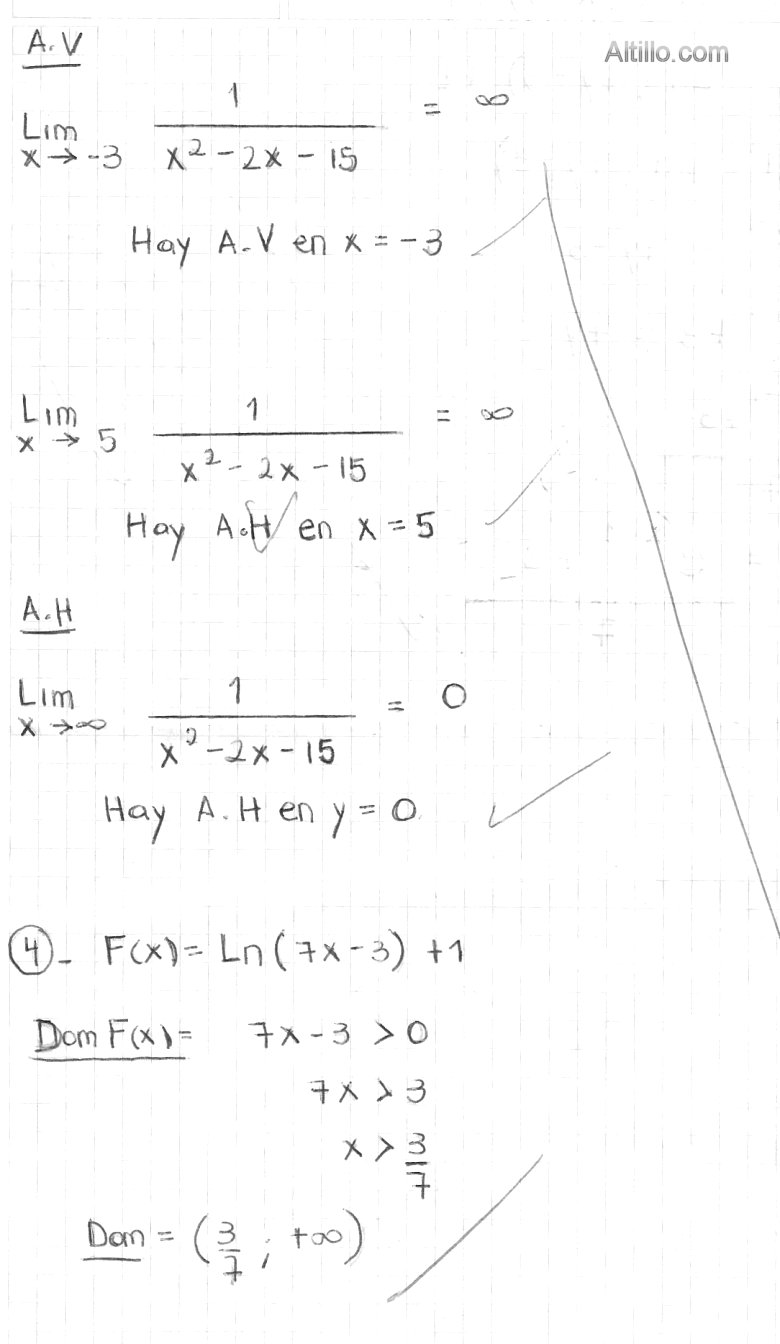 A.V
Altillo.com
Lim x → -3 1 / x² - 2x - 15 = ∞
Hay A.V en x = -3
Lim x → 5 1 / x² - 2x - 15 = ∞
Hay A.H en x = 5
A.H
Lim x → ∞ 1 / x² - 2x - 15 = 0
Hay A.H en y = 0
4- F(x) = Ln(7x - 3) + 1
Dom F(x) = 7x - 3 > 0
7x > 3
x > 3/7
Dom = (3/7 ; +∞)